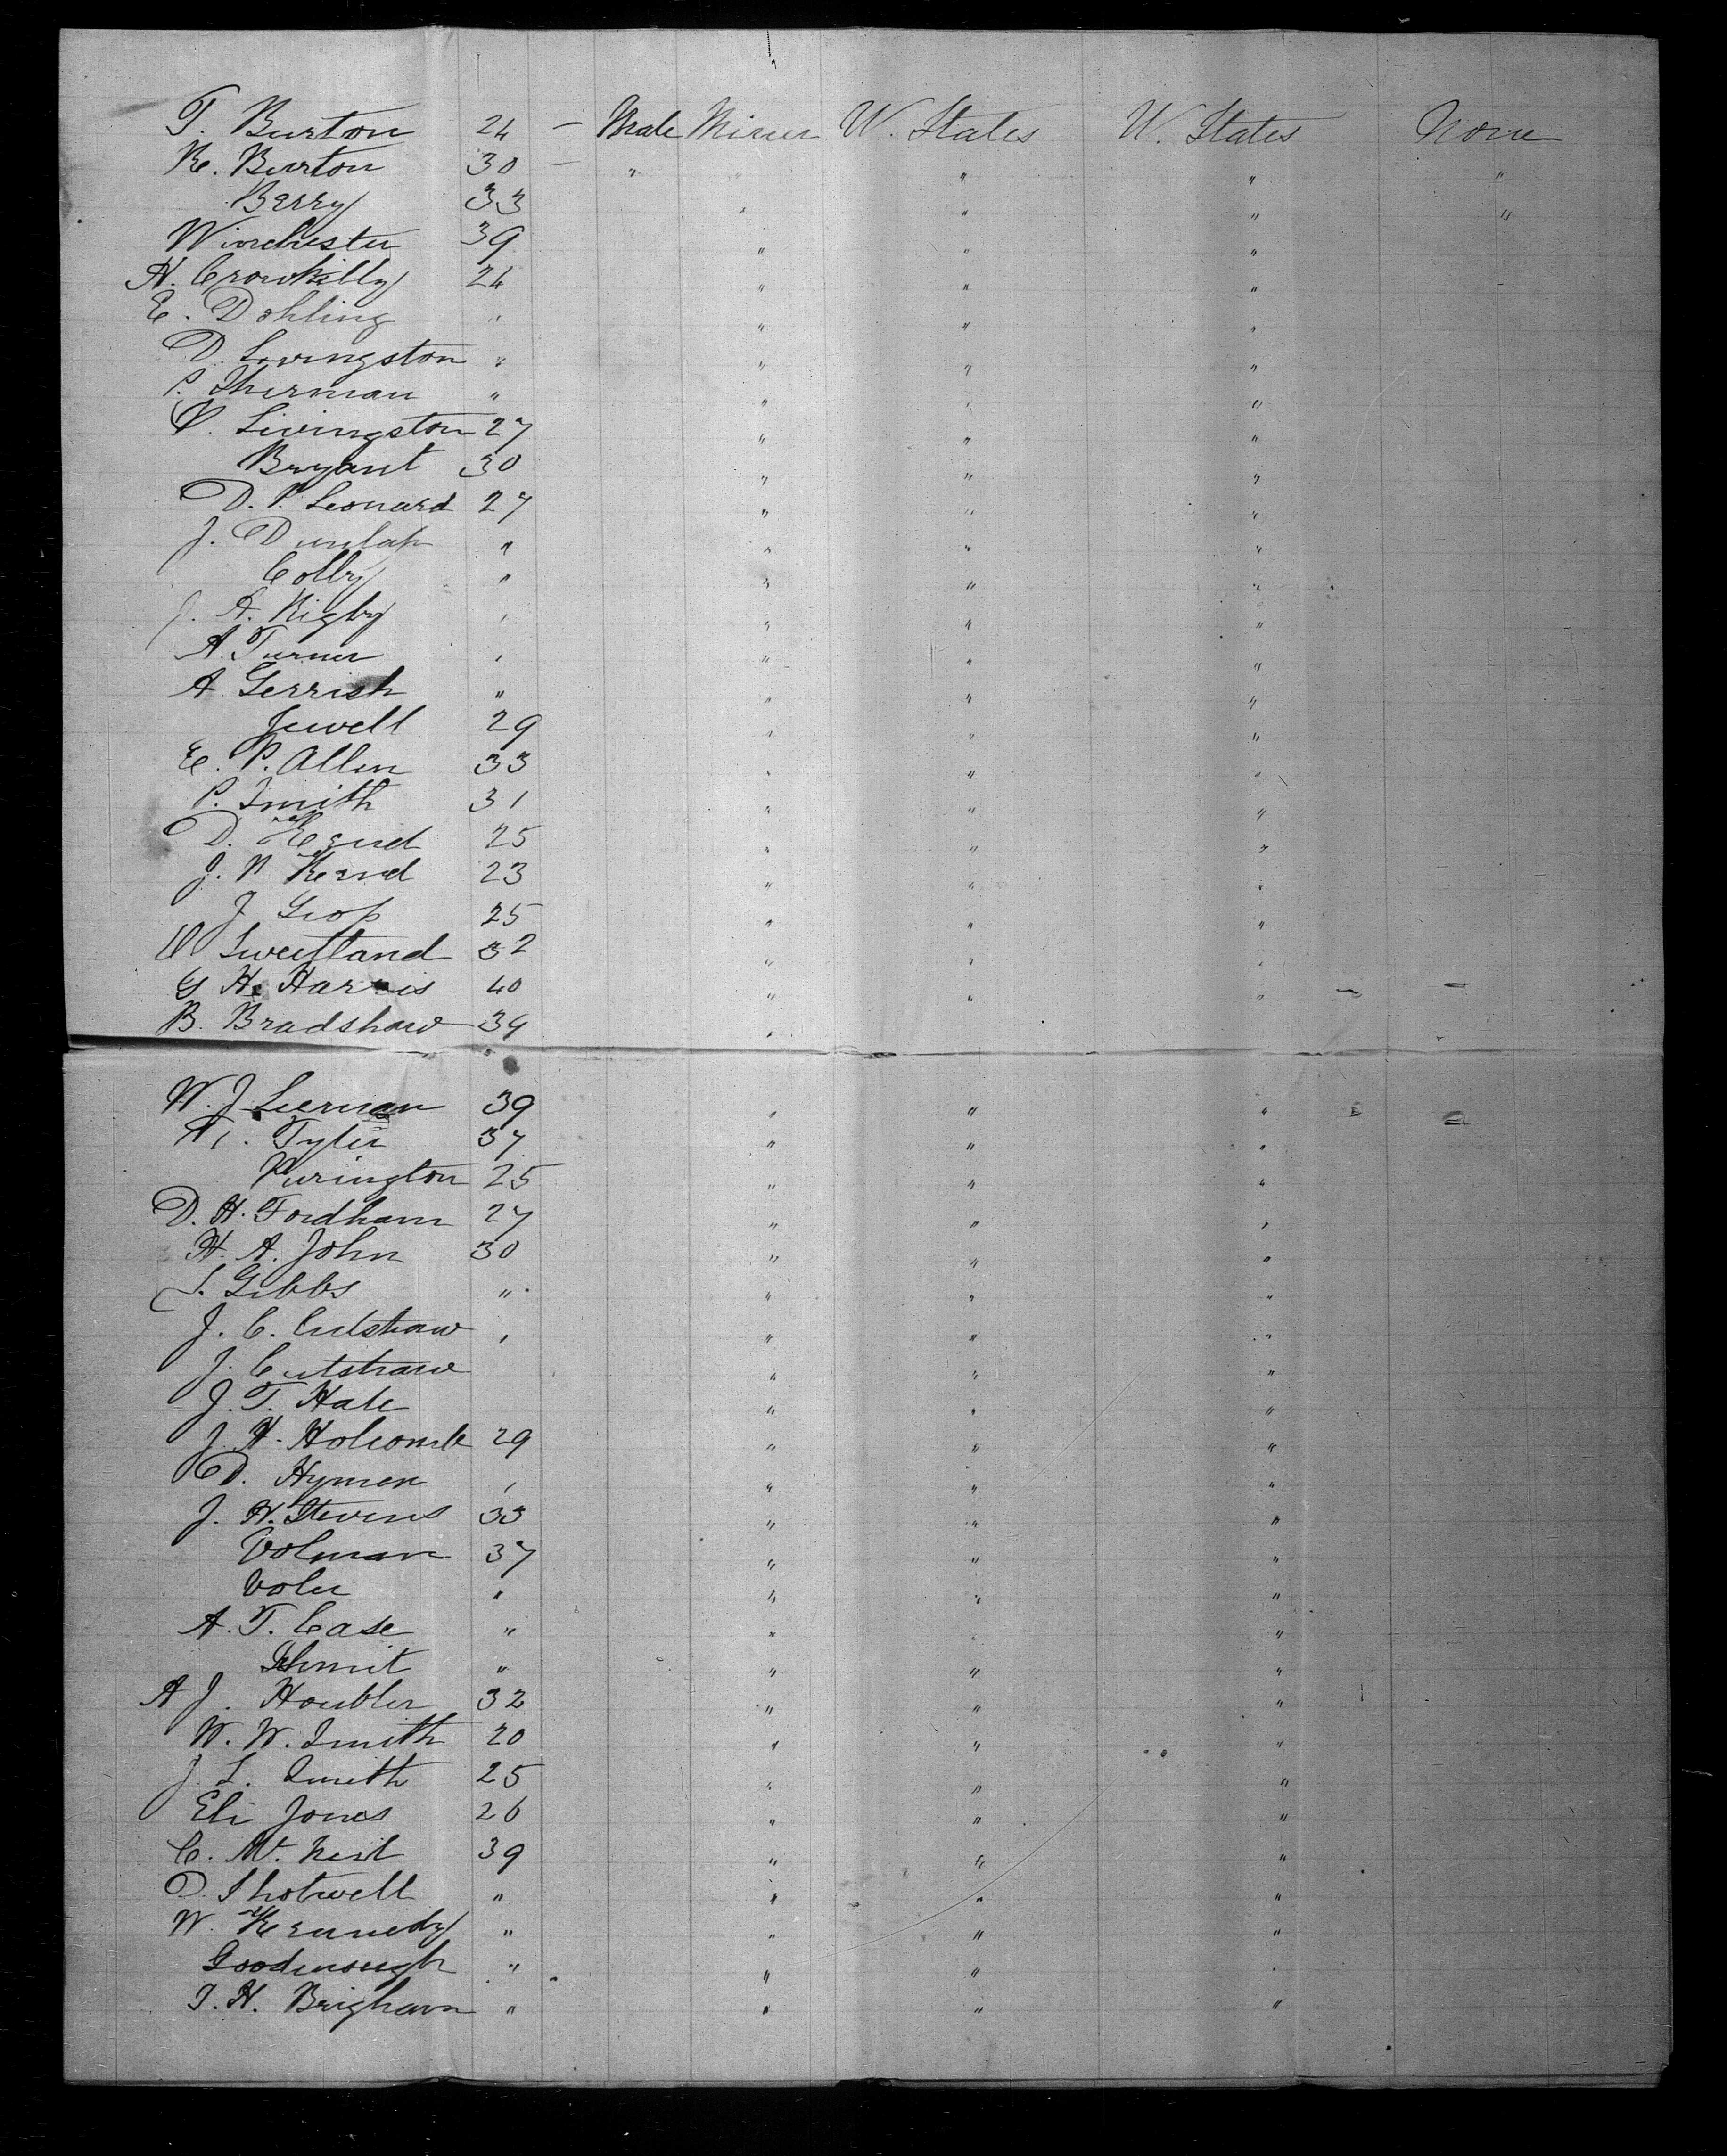 T. Burton 24 — Male Miner U. States U. States None
R. Burton 30 — " " " " "
Berry 33 " " " "
Winchester 39 " " "
H. 24 " " "
E. Dohling " " " "
D. Livingston " " " "
P. Sherman " " " "
P. Livingston 27 " " "
Bryant 30 " " "
D. P. Leonard 27 " " "
J. Dunlap " " " "
Colby " " " "
J. A. Rigby " " " "
A. Turner " " " "
A Gerrish " " " "
Jewell 29 " " "
E. P. Allen 33 " " "
P. Smith 31 " " "
D. 25 " " "
J. P. 23 " " "
J 25 " " "
P Sweetland 32 " " "
G H. Harris 40 " " "
B. Bradshaw 34 "
W. J. 39 " " "
Tyler 37 " " "
Purington 25 " " "
D. H. Fordham 27 " " "
H. A. John 30 " " "
S. Gibbs " " " "
J. C. Cutshaw " " " "
J. Cutshaw " " "
J. T. Hale " " "
J. H. Holcomb 29 " " "
D. Hymen " " " "
J. H. Stevens 33 " " "
Volman 37 " " "
Voler " " " "
A. T. Case " " " "
Schmit " " " "
A J. Houbler 32 " " "
W. W. Smith 20 " " "
J. L. Smith 25 " " "
Eli Jones 26 " " "
C. 39 " " "
D. Shotwell " " " "
W. Kennedy " " " "
Goodenough " " " "
T. H. Brigham " " " "